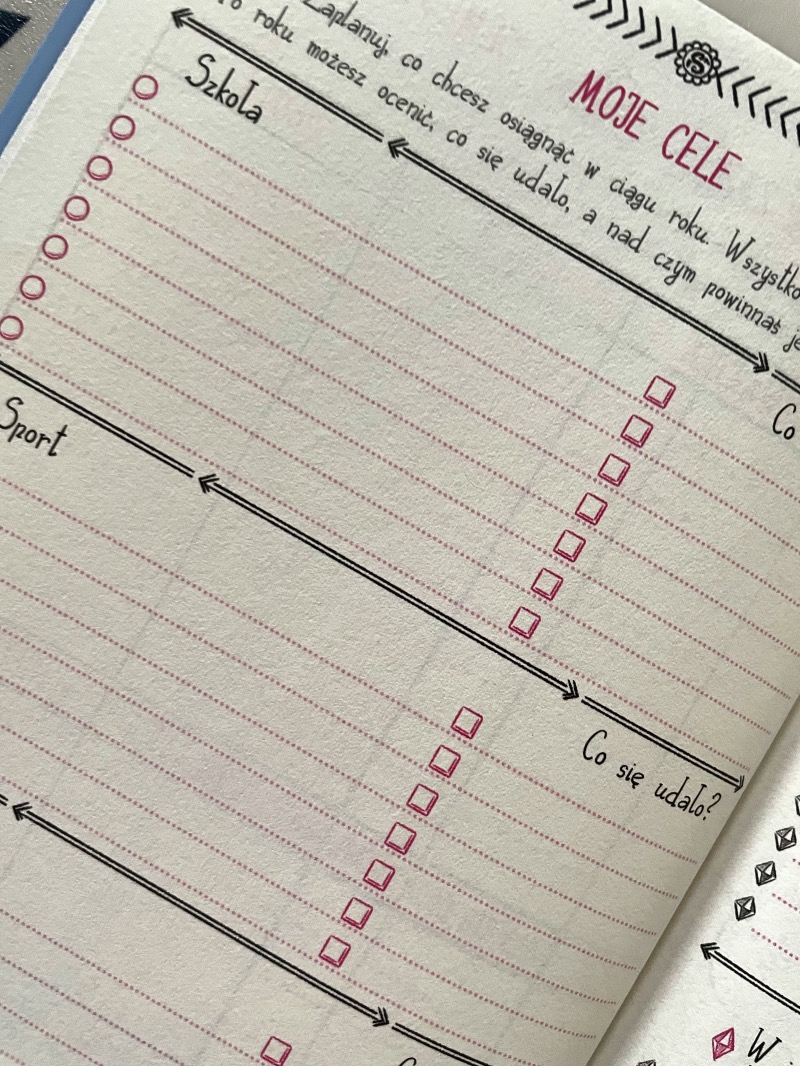 MOJE CELE
Zaplanuj, co chcesz osiągnąć w ciągu roku. Wszystko
roku możesz ocenić, co się udało, a nad czym powinnaś je
Szkoła
Co
Sport
Co się udało?
W